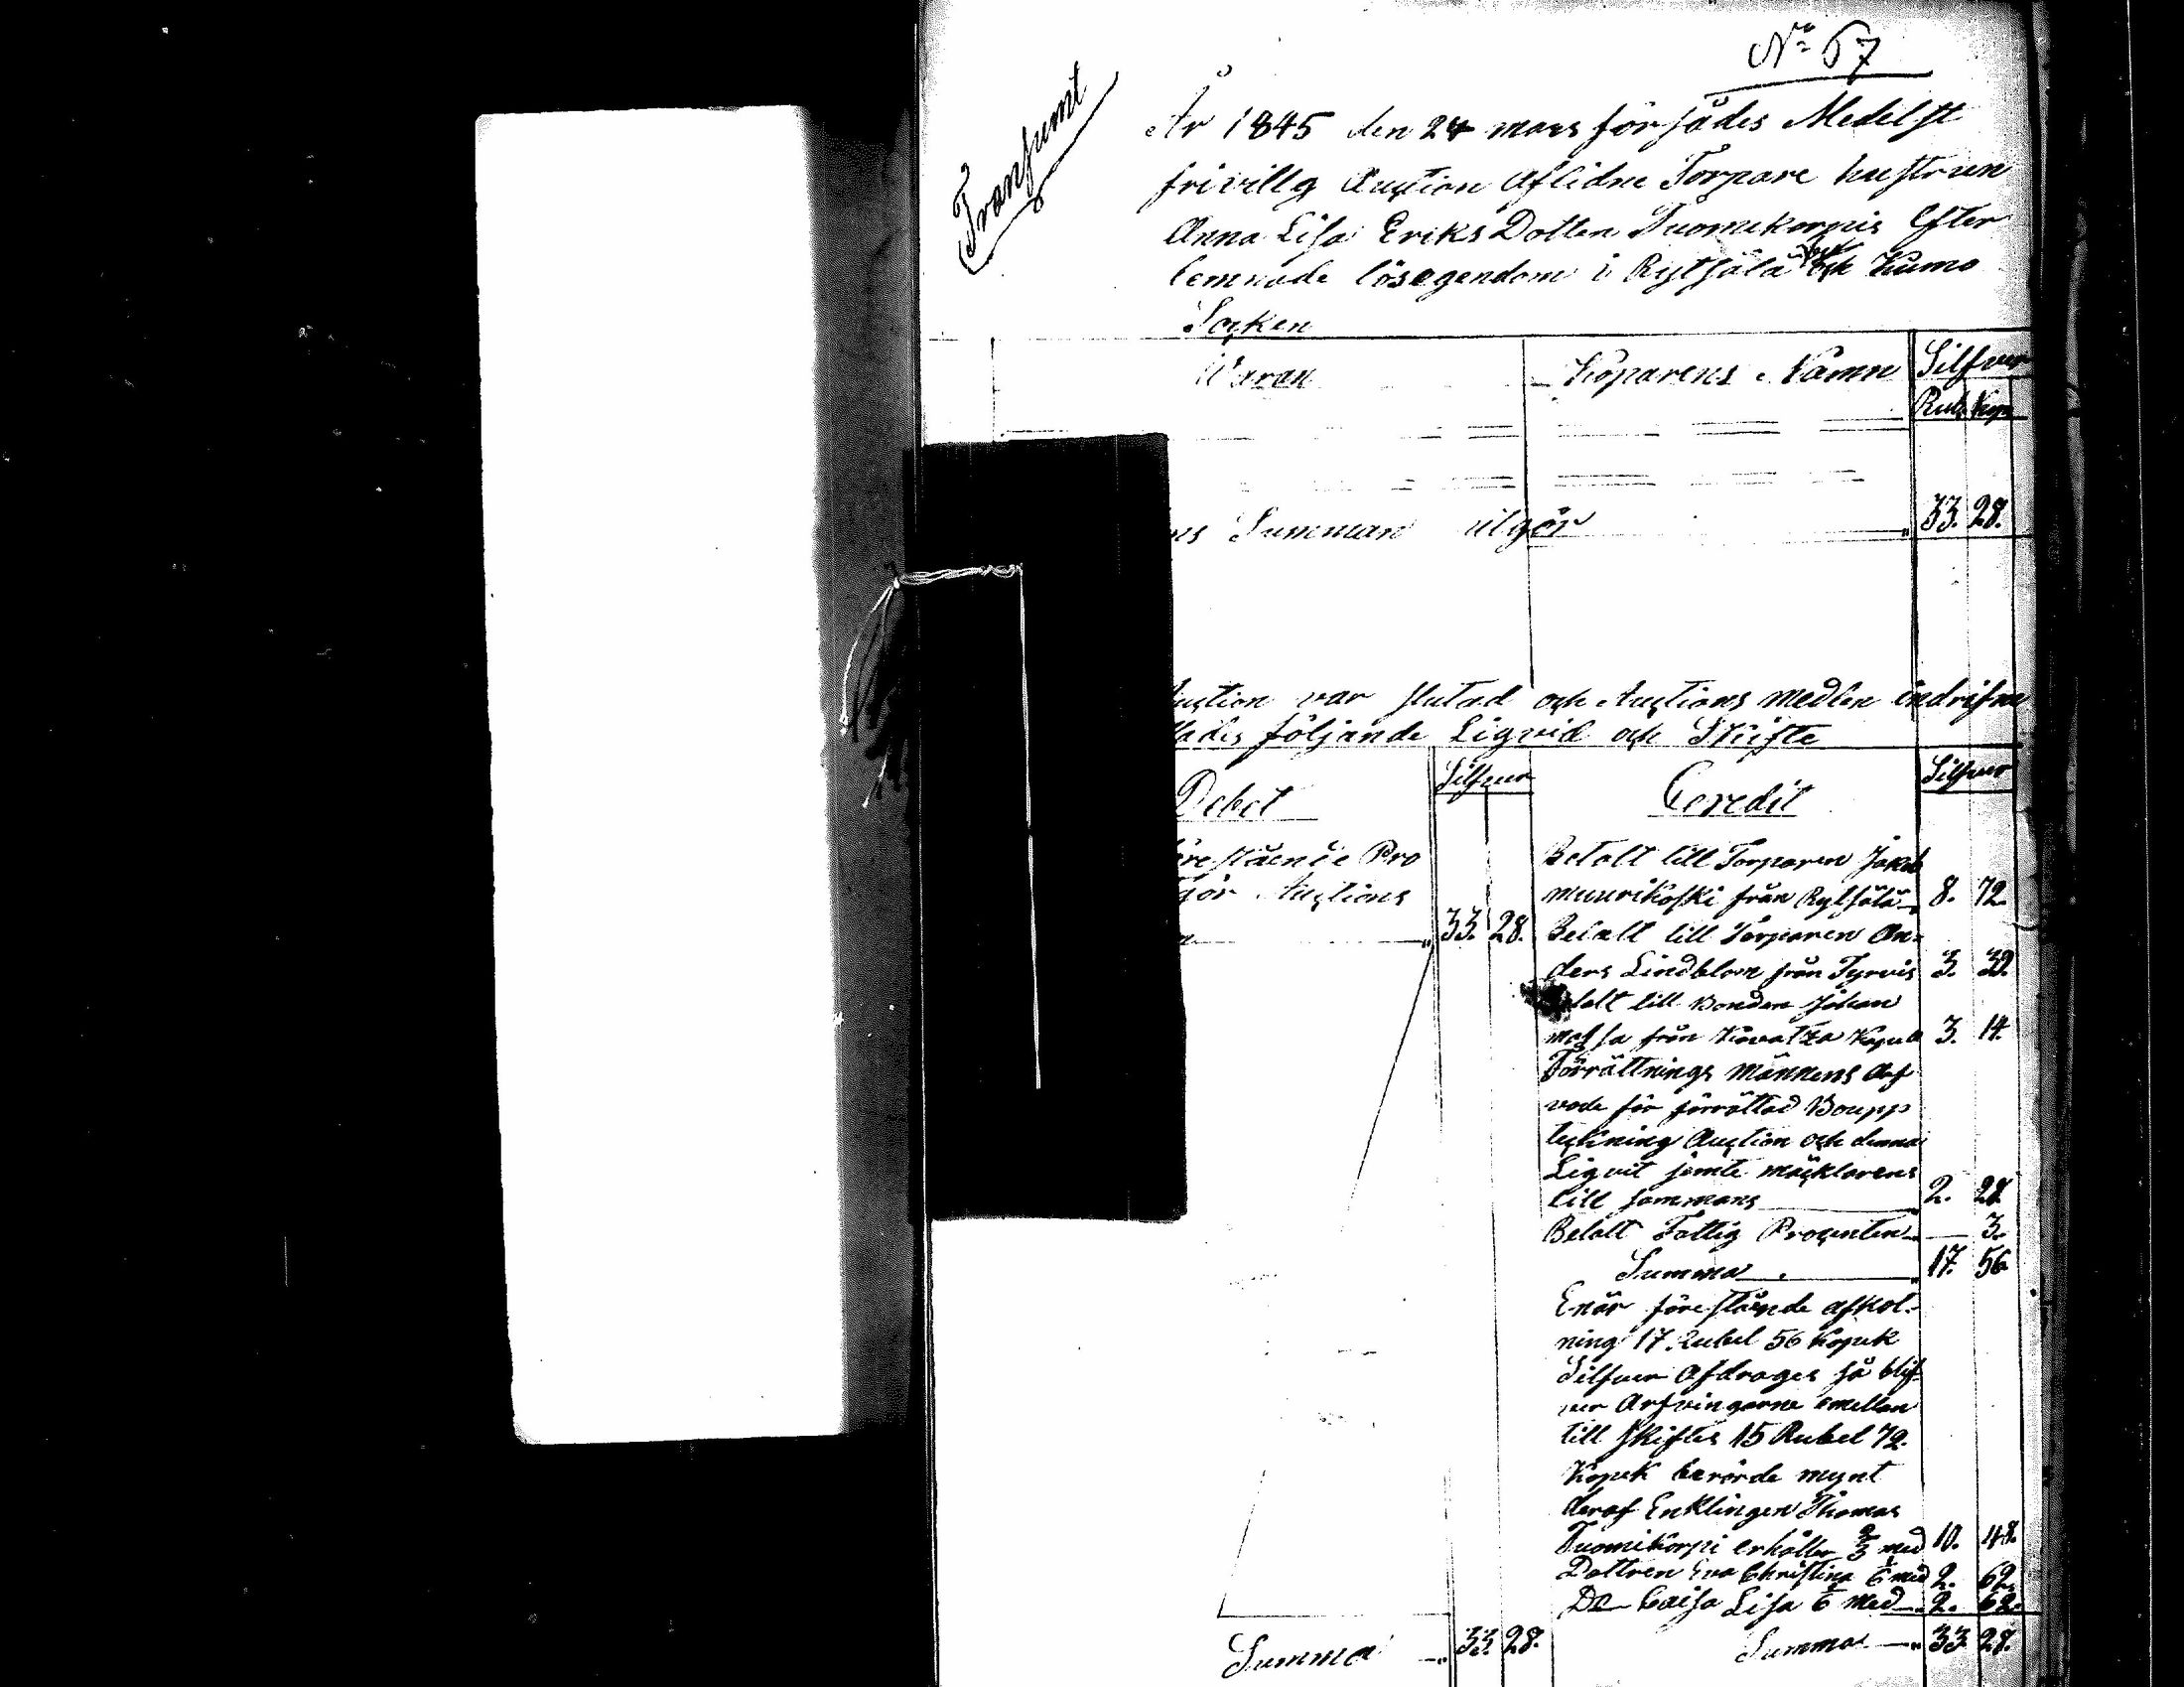 No 67
Transsumt
År 1845 den 24 mars försåldes Medelst
frivillg Auction Aflidne Torpare hustrun
Anna Lisa Eriks Dotten Tuomikorpis Efter
lemnade lösegendom i Rytsälä och Kumo
Socken
Waran
Köparens Namn
Silfver
Rub. Kop
ns Summan utgör 33. 28.
Auction var slutad och Auctions medlen indrifne
lledes följande Liqvid och Skifte
Debet
Silfver
Credit
Silfver
öreståen de Pro
gör Auctions
33. 28.
Betalt till Torparen Jakob
muurikoski från Rytsälä 8. 72.
Betalt till Torparen An-
ders Lindblom från Tyrvis 3. 39.
Betalt till Bonden Johan
från Kapell 3. 14.
Förrättnings männens Arf
vode för förrättad Boupp
teckning Auction och denna
Liqvit jemte mäcklarens
till sammans 2. 28.
Betalt Fattig Procenten 3.
Summa 17. 56
Enär föreslående afkol-
ning 17 Rubel 56 Kopek
Silfver Afdrages så blif-
ver Arfvingarne emellan
till skiftes 15 Rubel 72.
Kopek berörde mynt
deraf Enklingen Thomas
Tuomikorpi erhåller 2/3 med 10. 48.
Dottren Eva Christina 1/6 med 2. 62.
Do Caisa Lisa 1/6 med 2. 62.
Summa 33. 28.
Summa 33 28.